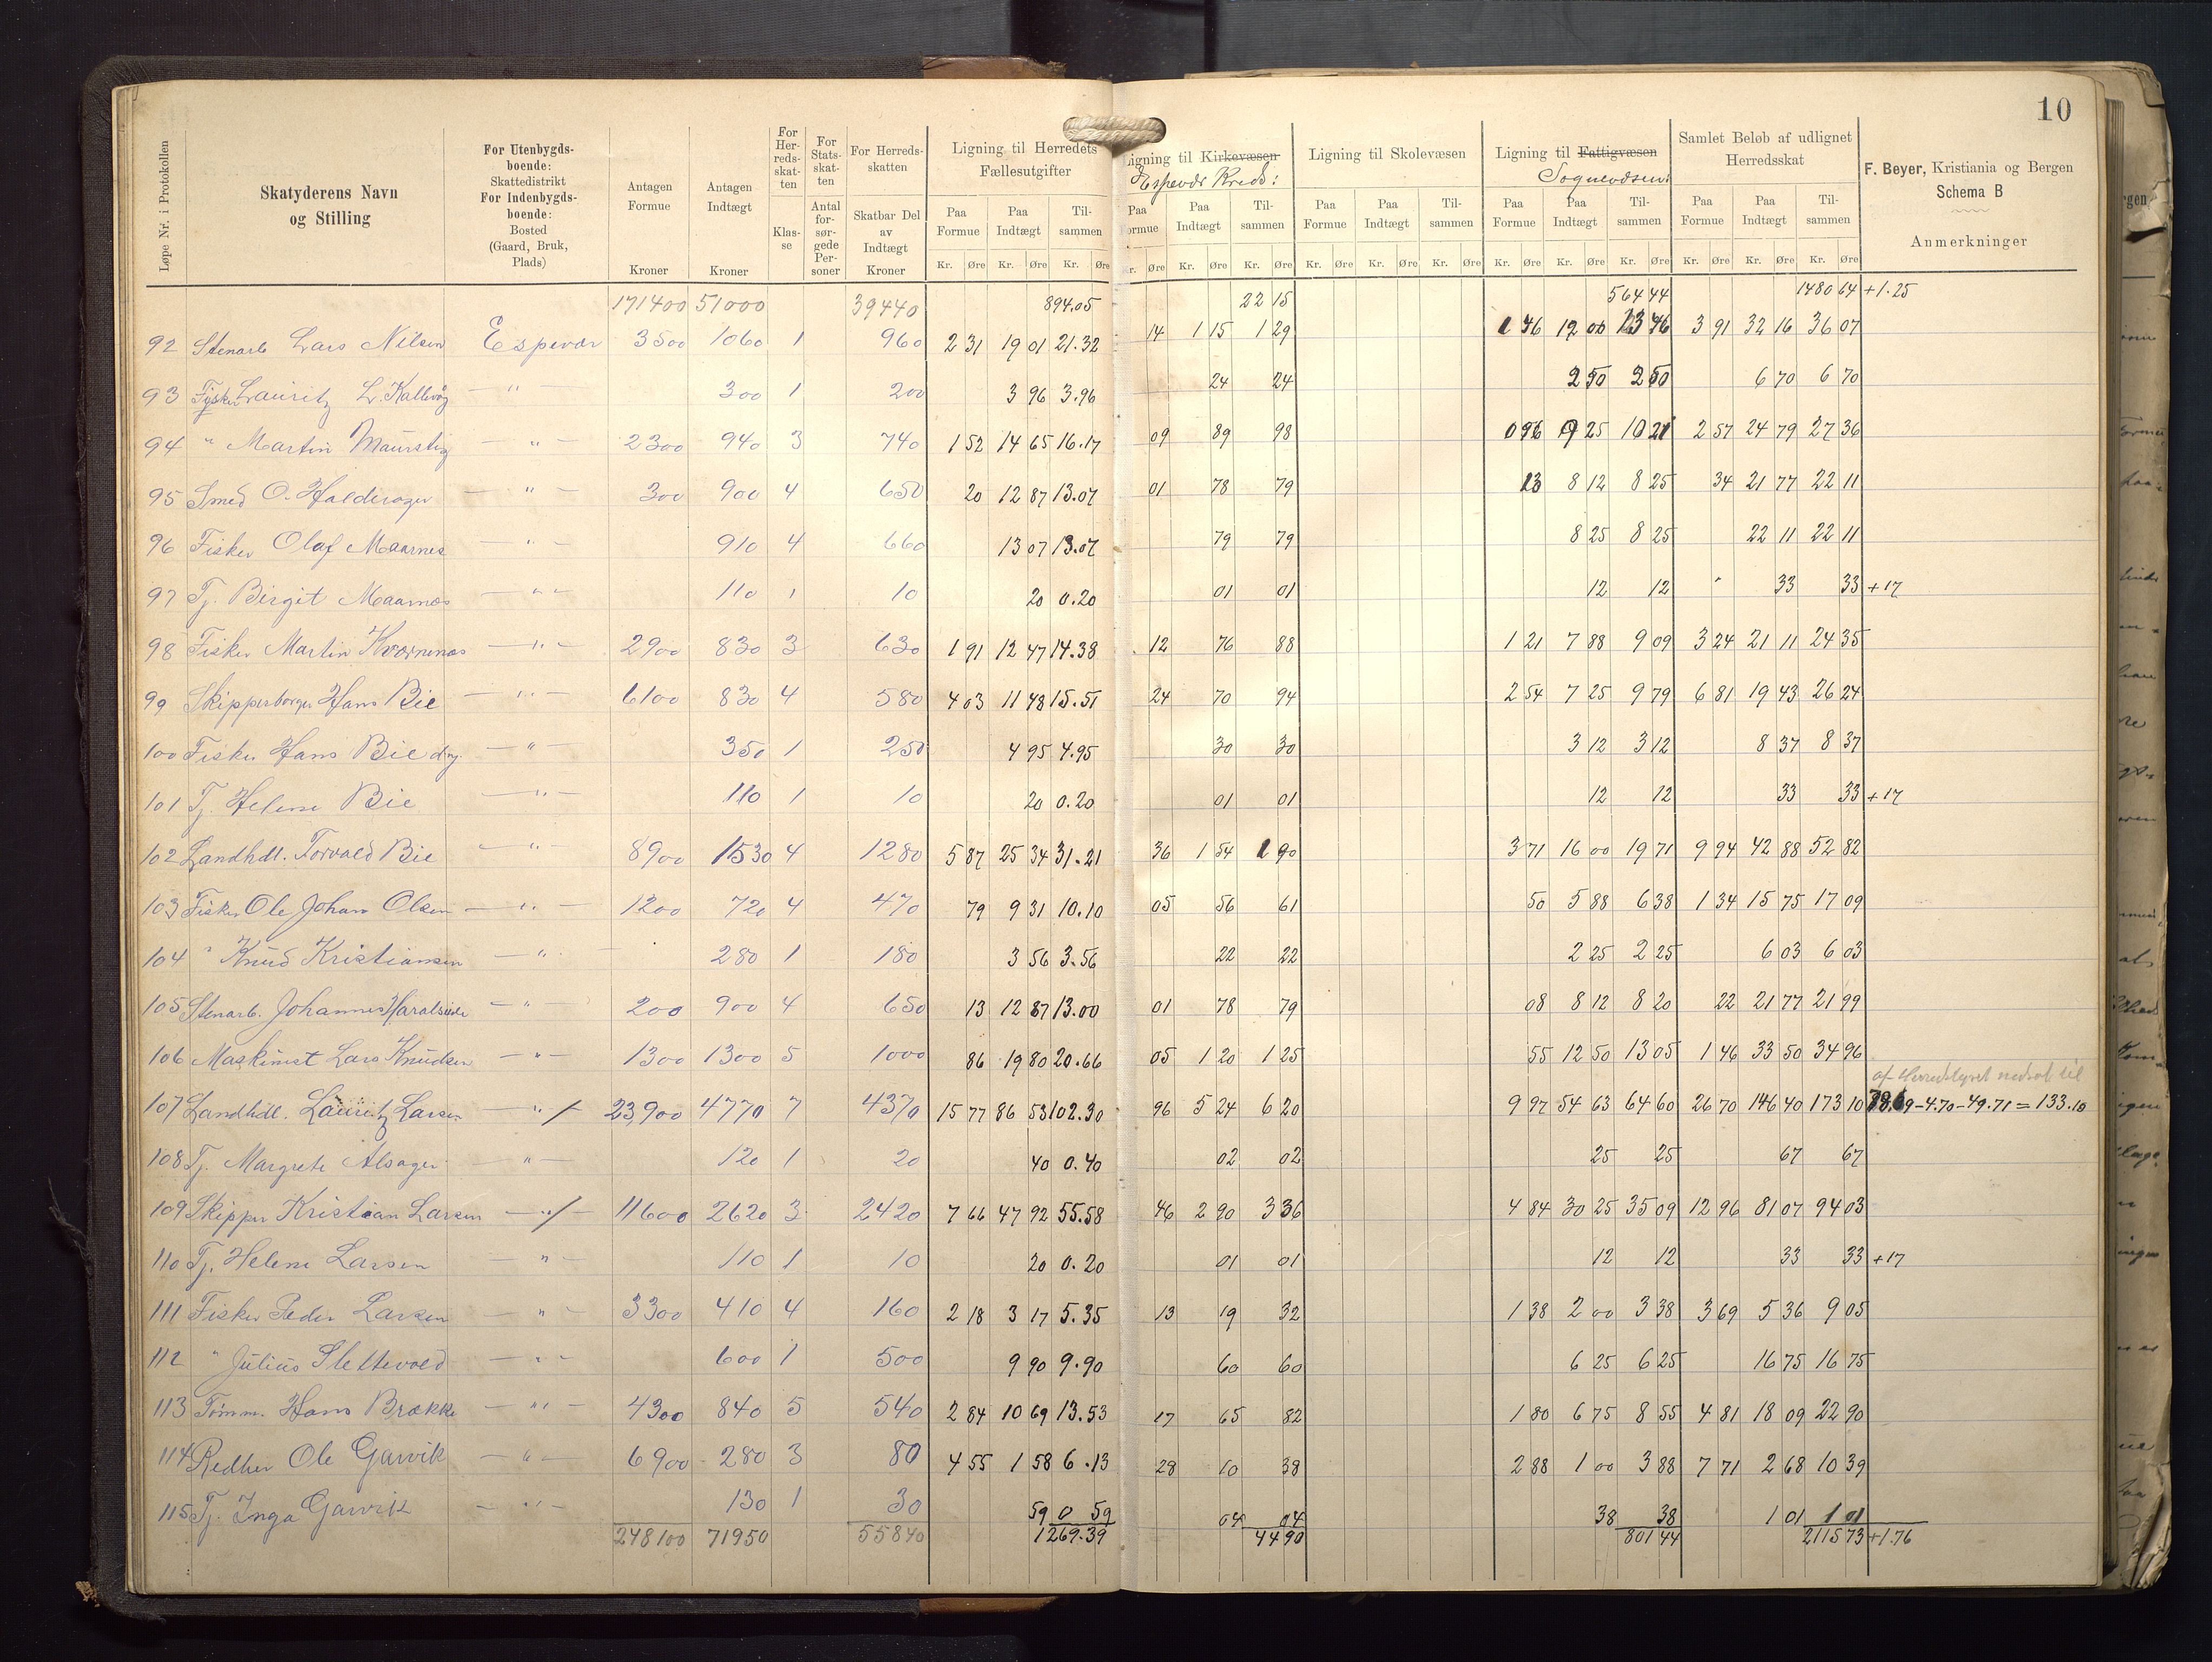 10
Løpe Nr. i Protokollen | Skatyderens Navn og Stilling | For Utenbygdsboende: Skattedistrikt For Indenbygdsboende: Bosted (Gaard, Bruk, Plads) | Antagen Formue Kroner | Antagen Indtægt Kroner | For Herredsskatten Klasse | For Statsskatten Antal forsørgede Personer | For Herredsskatten Skatbar Del av Indtægt Kroner | Ligning til Herredets Fællesutgifter Paa Formue Kr. Øre Paa Indtægt Kr. Øre Tilsammen Kr. Øre | Ligning til Kirkevæsen Espevær Kreds: Paa Formue Kr. Øre Paa Indtægt Kr. Øre Tilsammen Kr. Øre | Ligning til Skolevæsen Paa Formue Kr. Øre Paa Indtægt Kr. Øre Tilsammen Kr. Øre | Ligning til Fattigvæsen Sognevæsen: Paa Formue Kr. Øre Paa Indtægt Kr. Øre Tilsammen Kr. Øre | Samlet Beløb af udlignet Herredsskat Paa Formue Kr. Øre Paa Indtægt Kr. Øre Tilsammen Kr. Øre | F. Beyer, Kristiania og Bergen Schema B Anmerkninger
171400 51000 39440 894.05 22 15 564 44 1480 64 +1.25
92 Stenarb Lars Nilsen Espevær 3500 1060 1 960 2 31 19 01 21.32 14 1 15 1 29 1 46 12 00 13 46 3 91 32 16 36 07
93 Fisker Lauritz L. Kallevåg — " — 300 1 200 3 96 3.96 24 24 2 50 2 50 6 70 6 70
94 " Martin — " — 2300 940 3 740 1 52 14 65 16.17 09 89 98 0 96 9 25 10 21 2 57 24 79 27 36
95 Smed O. Halderager — " — 300 900 4 650 20 12 87 13.07 01 78 79 13 8 12 8 25 34 21 77 22 11
96 Fisker Olaf Maarnes — " — 910 4 660 13 07 13.07 79 79 8 25 8 25 22 11 22 11
97 Tj. Birgit Maarnes — " — 110 1 10 20 0.20 01 01 12 12 33 33 +17
98 Fisker Martin Kvernenes — " — 2900 830 3 630 1 91 12 47 14.38 12 76 88 1 21 7 88 9 09 3 24 21 11 24 35
99 Skipperborger Hans Bie — " — 6100 830 4 580 4 03 11 48 15.51 24 70 94 2 54 7 25 9 79 6 81 19 43 26 24
100 Fisker Hans Bie d.y. — " — 350 1 250 4 95 4.95 30 30 3 12 3 12 8 37 8 37
101 Tj. Helene Bie — " — 110 1 10 20 0.20 01 01 12 12 33 33 +17
102 Landhdl. Torvald Bie — " — 8900 1530 4 1280 5 87 25 34 31.21 36 1 54 1 90 3 71 16 00 19 71 9 94 42 88 52 82
103 Fisker Ole Johan Olsen — " — 1200 720 4 470 79 9 31 10.10 05 56 61 50 5 88 6 38 1 34 15 75 17 09
104 " Knud Kristiansen — " — 280 1 180 3 56 3.56 22 22 2 25 2 25 6 03 6 03
105 Stenarb. Johannes Haralseide — " — 200 900 4 650 13 12 87 13.00 01 78 79 08 8 12 8 20 22 21 77 21 99
106 Maskinist Lars Knudsen — " — 1300 1300 5 1000 86 19 80 20.66 05 1 20 1 25 55 12 50 13 05 1 46 33 50 34 96
af Herredstyret nedsat til
107 Landhdl. Lauritz Larsen — " / — 23,900 4770 7 4370 15 77 86 53 102.30 96 5 24 6 20 9 97 54 63 64 60 26 70 146 40 173 10 78.69-4.70-49.71=133.10
108 Tj. Margrete Alsager — " — 120 1 20 40 0.40 02 02 25 25 67 67
109 Skipper Kristian Larsen — " / — 11600 2620 3 2420 7 66 47 92 55.58 46 2 90 3 36 4 84 30 25 35 09 12 96 81 07 94 03
110 Tj. Helene Larsen — " — 110 1 10 20 0.20 01 01 12 12 33 33 +17
111 Fisker Peder Larsen — " — 3300 410 4 160 2 18 3 17 5.35 13 19 32 1 38 2 00 3 38 3 69 5 36 9 05
112 " Julius Slettevold — " — 600 1 500 9 90 9.90 60 60 6 25 6 25 16 75 16 75
113 Tømm. Hans Brække — " — 4300 840 5 540 2 84 10 69 13.53 17 65 82 1 80 6 75 8 55 4 81 18 09 22 90
114 Redher Ole Garvik — " — 6900 280 3 80 4 55 1 58 6.13 28 10 38 2 88 1 00 3 88 7 71 2 68 10 39
115 Tj. Inga Garvik — " — 130 1 30 59 0 59 04 04 38 38 1 01 1 01
248100 71950 55840 1269.39 44 90 801 44 2115 73 +1.76